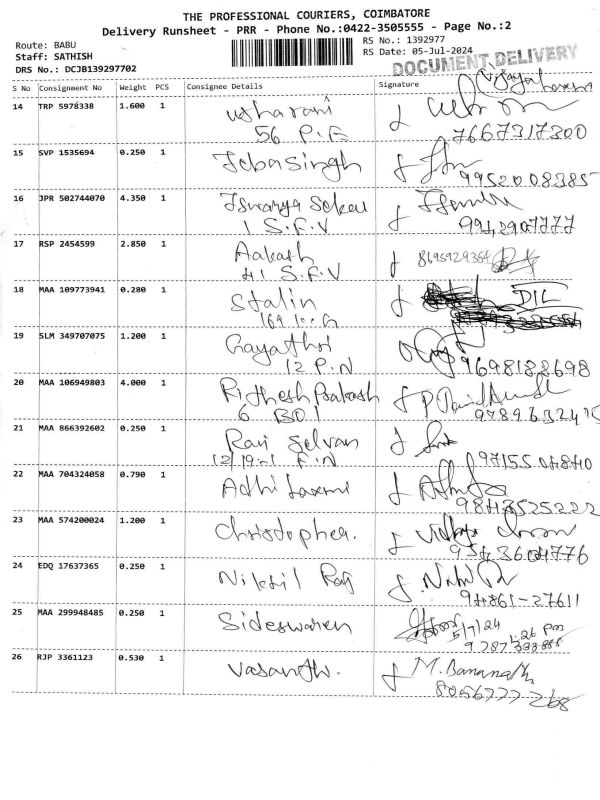 THE PROFESSIONAL COURIERS, COIMBATORE
Delivery Runsheet - PRR - Phone No.:0422-3505555 - Page No.:2
Route: BABU
Staff: SATHISH
DRS No.: DCJB139297702
RS No.: 1392977
RS Date: 05-Jul-2024
DOCUMENT DELIVERY
S No Consignment No Weight PCS Consignee Details Signature
14 TRP 5978338 1.600 1 usharani
56 P.E 7667317300
15 SVP 1535694 0.250 1 Jebasingh
9952008385
16 JPR 502744070 4.350 1 Iswarya Sekar
1 S.F.V 9942907777
17 RSP 2454599 2.850 1 Aakash 8695929354
41 S.F.V
18 MAA 109773941 0.280 1 Stalin D/L
19 SLM 349707075 1.200 1 Gayathri
12 P.N 9698188698
20 MAA 106949803 4.000 1 Rithesh Prakash
6 BOI
21 MAA 866392602 0.250 1 Ravi Selvan
12/19-1 F.N 97155 04840
22 MAA 704324058 0.790 1 Adhi Laxmi
9843525222
23 MAA 574200024 1.200 1 Christopher.
9543604776
24 EDQ 17637365 0.250 1 Nikhil Raj
94861-27611
25 MAA 299948485 0.250 1 Sideswaren
5/7/24
1:26 pm
9787333888
26 RJP 3361123 0.530 1 Vasanth. M. Bananath
8056777268